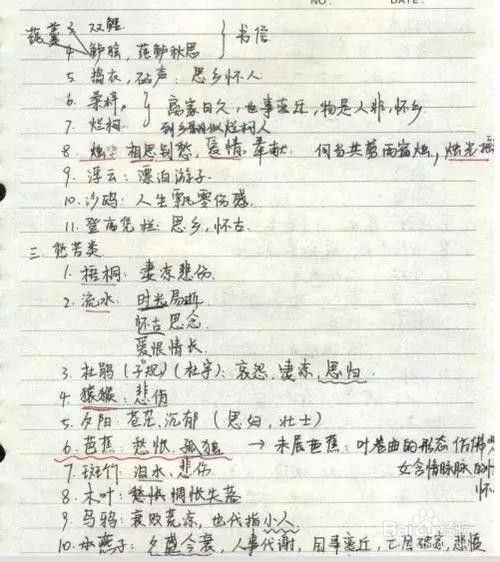 NO.  DATE.
莼羹 3. 双鲤
4. 鲈脍, 莼鲈秋思 } 书信
5. 捣衣, 砧声: 思乡怀人
6. 桑梓,
7. 烂柯 } 离家日久, 世事变迁, 物是人非, 怀乡
到乡翻似烂柯人
8. 烛: 相思别愁, 爱情, 奉献. 何当共剪西窗烛, 烛光
9. 浮云: 漂泊游子.
10. 沙鸥: 人生飘零伤感.
11. 登高凭栏: 思乡, 怀古.
三. 愁苦类
1. 梧桐: 凄凉悲伤.
2. 流水: 时光易逝
怀古思念.
爱恨情长.
3. 杜鹃(子规)(杜宇): 哀怨, 凄凉, 思归.
4. 猿猴: 悲伤
5. 夕阳: 苍茫, 沉郁 (思妇, 壮士)
6. 芭蕉: 愁怅 孤独 → 未展芭蕉: 叶卷曲的形态仿佛
7. 斑竹: 泪水、悲伤. 女含情脉脉的
8. 木叶: 愁怅 惆怅失落 怀
9. 乌鸦: 衰败荒凉, 也代指小人
10. 燕子: 夕盛今衰, 人事代谢, 国事变迁, 亡国破家, 悲愤
Baidu